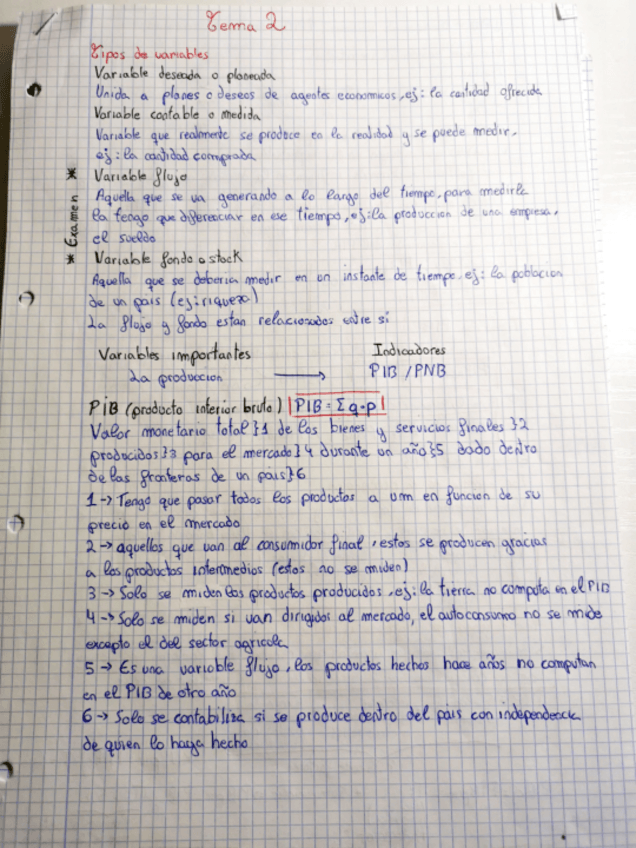 Tema 2
Tipos de variables
Variable deseada o planeada
Unida a planes o deseos de agentes economicos, ej: la cantidad ofrecida
Variable contable o medida
Variable que realmente se produce en la realidad y se puede medir.
ej: la cantidad comprada
* Variable flujo
Aquella que se va generando a lo largo del tiempo, para medirla
la tengo que diferenciar en ese tiempo, ej: la produccion de una empresa,
el sueldo
Examen
* Variable fondo o stock
Aquella que se deberia medir en un instante de tiempo, ej: la poblacion
de un pais (ej: riqueza)
La flujo y fondo estan relacionados entre si
Variables importantes Indicadores
La produccion → PIB / PNB
PiB (producto interior bruto) | PIB = Σ q·p |
Valor monetario total}1 de los bienes y servicios finales}2
producidos}3 para el mercado}4 durante un año}5 dado dentro
de las fronteras de un pais}6
1 → Tengo que pasar todos los productos a um en funcion de su
precio en el mercado
2 → aquellos que van al consumidor final, estos se producen gracias
a los productos intermedios (estos no se miden)
3 → Solo se miden los productos producidos, ej: la tierra no computa en el PIB
4 → Solo se miden si van dirigidos al mercado, el autoconsumo no se mide
excepto el del sector agricola
5 → Es una variable flujo, los productos hechos hace años no computan
en el PIB de otro año
6 → Solo se contabiliza si se produce dentro del pais con independencia
de quien lo haya hecho